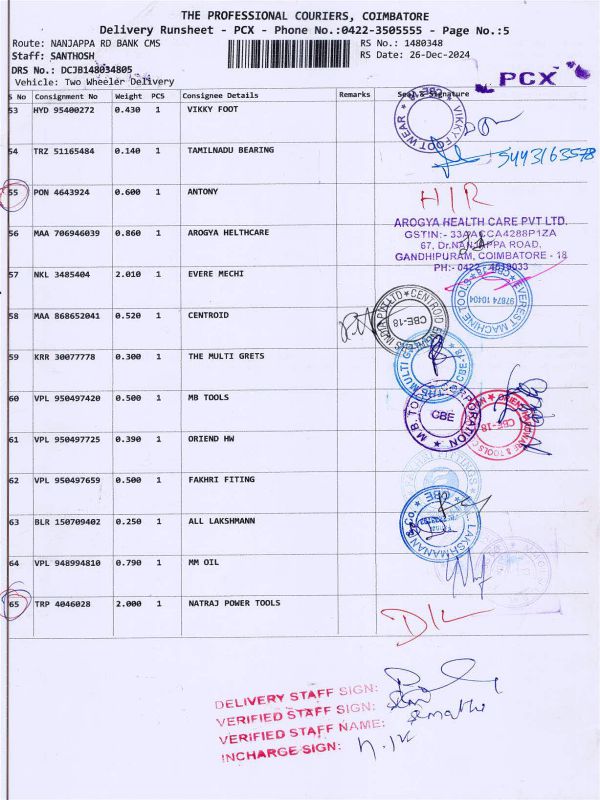 THE PROFESSIONAL COURIERS, COIMBATORE
Delivery Runsheet - PCX - Phone No.:0422-3505555 - Page No.:5
Route: NANJAPPA RD BANK CMS
RS No.: 1480348
Staff: SANTHOSH
RS Date: 26-Dec-2024
DRS No.: DCJB148034805
Vehicle: Two Wheeler Delivery
PCX
S No Consignment No Weight PCS Consignee Details Remarks Seal & Signature
53 HYD 95400272 0.430 1 VIKKY FOOT
VIKKY FOOT WEAR ★ CBE ★
54 TRZ 51165484 0.140 1 TAMILNADU BEARING
9443163578
55 PON 4643924 0.600 1 ANTONY
H/R
56 MAA 706946039 0.860 1 AROGYA HELTHCARE
AROGYA HEALTH CARE PVT LTD.
GSTIN:- 33AACCA4288P1ZA
67, Dr.NANJAPPA ROAD,
GANDHIPURAM, COIMBATORE - 18
PH:- 0422 - 4519033
57 NKL 3485404 2.010 1 EVERE MECHI
EVEREST MACHINE TOOLS ★ CBE-18 ★
97874 10404
58 MAA 868652041 0.520 1 CENTROID
CENTROID
CBE-18
59 KRR 30077778 0.300 1 THE MULTI GRETS
THE MULTI
CBE-18
60 VPL 950497420 0.500 1 MB TOOLS
M.B. TO CORPORATION
CBE
61 VPL 950497725 0.390 1 ORIEND HW
& TOOLS
CBE-18
62 VPL 950497659 0.500 1 FAKHRI FITING
FITTINGS
63 BLR 150709402 0.250 1 ALL LAKSHMANN
LAKSHMANAN & CO. CBE
64 VPL 948994810 0.790 1 MM OIL
65 TRP 4046028 2.000 1 NATRAJ POWER TOOLS
D/L
DELIVERY STAFF SIGN:
VERIFIED STAFF SIGN:
VERIFIED STAFF NAME:
INCHARGE SIGN: